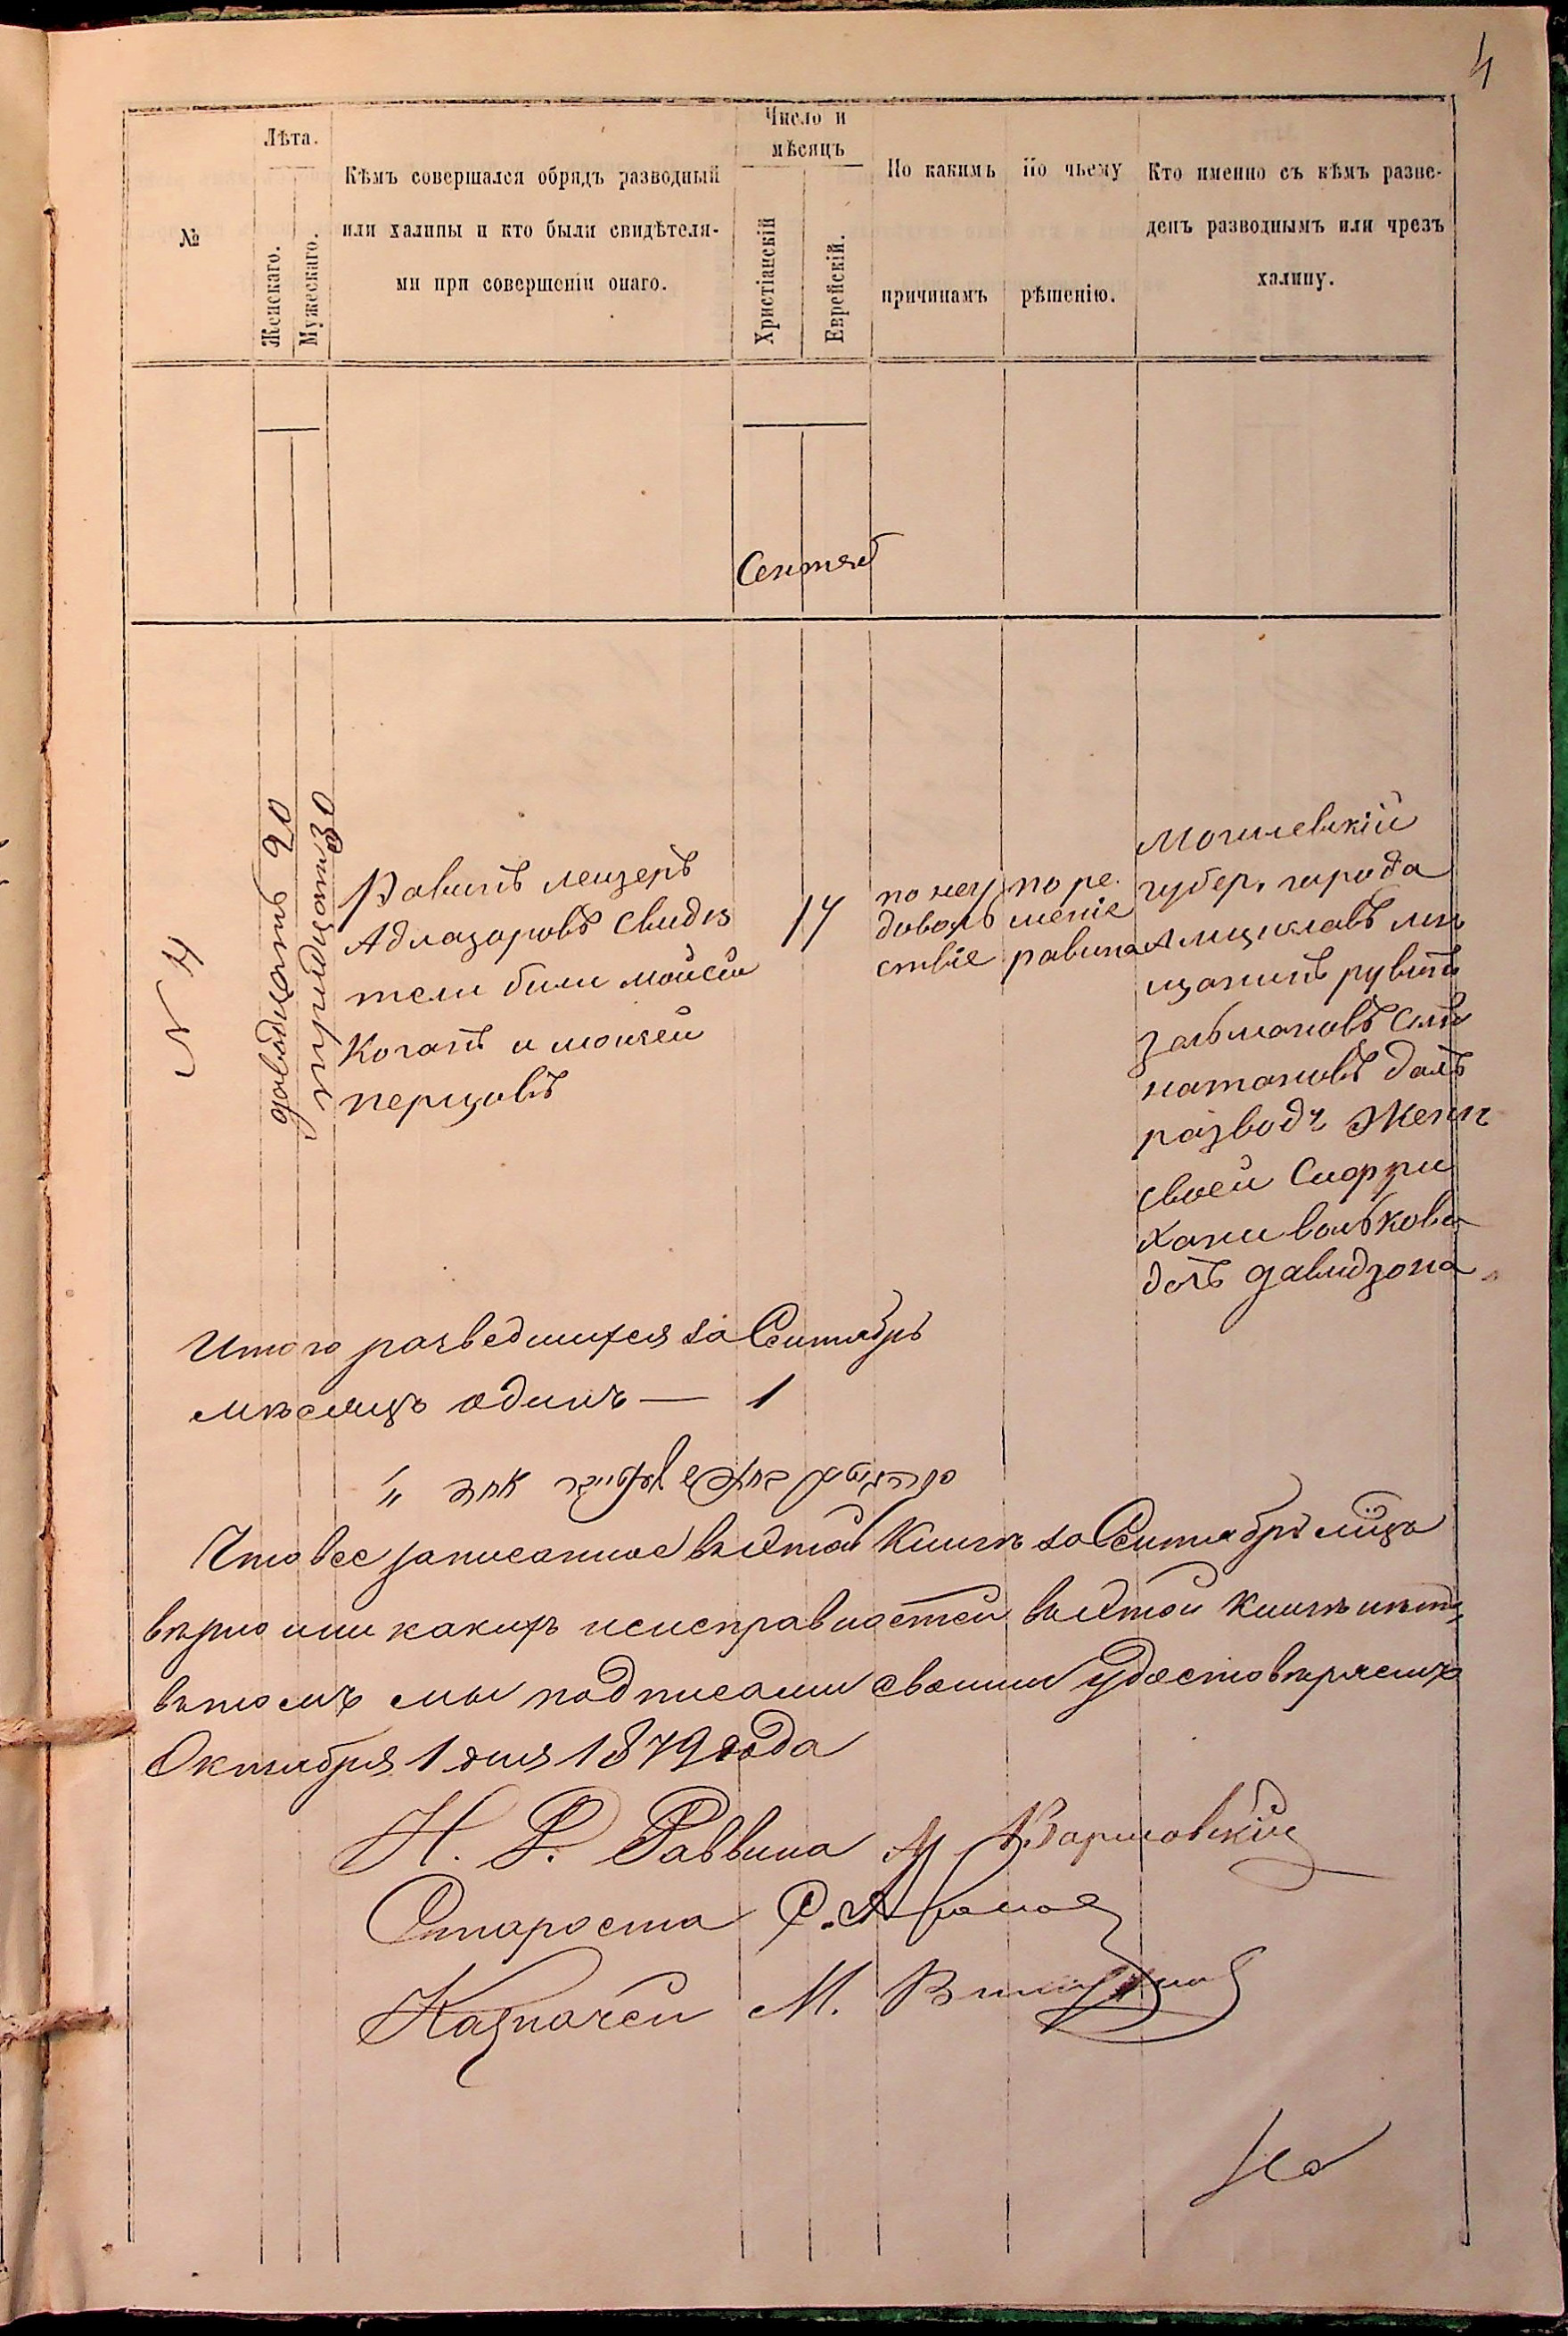 4
№
Лѣта.
Женскаго.
Мужескаго.
Кѣмъ совершался обрядъ разводный
или халицы и кто были свидѣтеля-
ми при совершеніи онаго.
Число и
мѣсяцъ
Христіанскій
Еврейскій.
По какимъ
причинамъ
По чьему
рѣшенію.
Кто именно съ кѣмъ разве-
денъ разводнымъ или чрезъ
халицу.
Сентяб
N 4
довадцать 20
тридцати 30
Равинъ лейзеръ
Адлазоровъ Свидѣ
тели были мойсей
Коганъ и мойсей
перцовъ
17
по неу
доволь
ствіе
по ре
шеніе
равина
Могилевскій
губер. города
Амциславъ мѣ
щанинъ рувинъ
Зальмановъ Синъ
натановъ далъ
разводъ Женѣ
своей Сиофри
Хани волькова
дочъ давидзона
Итого розведшихся за Сентябрь
мѣсяцъ одинъ — 1
Что все записанное въ этой Книгѣ за Сентябрь мѣцъ
вѣрно и ни какихъ неисправностей въ этой книгѣ нѣтъ,
въ томъ мы подписами своими удостовѣряемъ
Октября 1 дня 1879 года
И. Д. Раввина М Варшовскій
Староста С.
Казначей М.